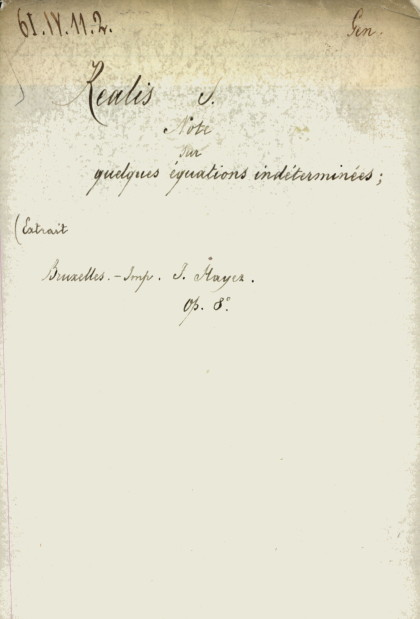 61.IV.11.2.
Gen.
Realis S.
Note
sur
quelques équations indéterminées;
(Extrait
Bruxelles. - Imp. F. Hayez.
Op. 8º.